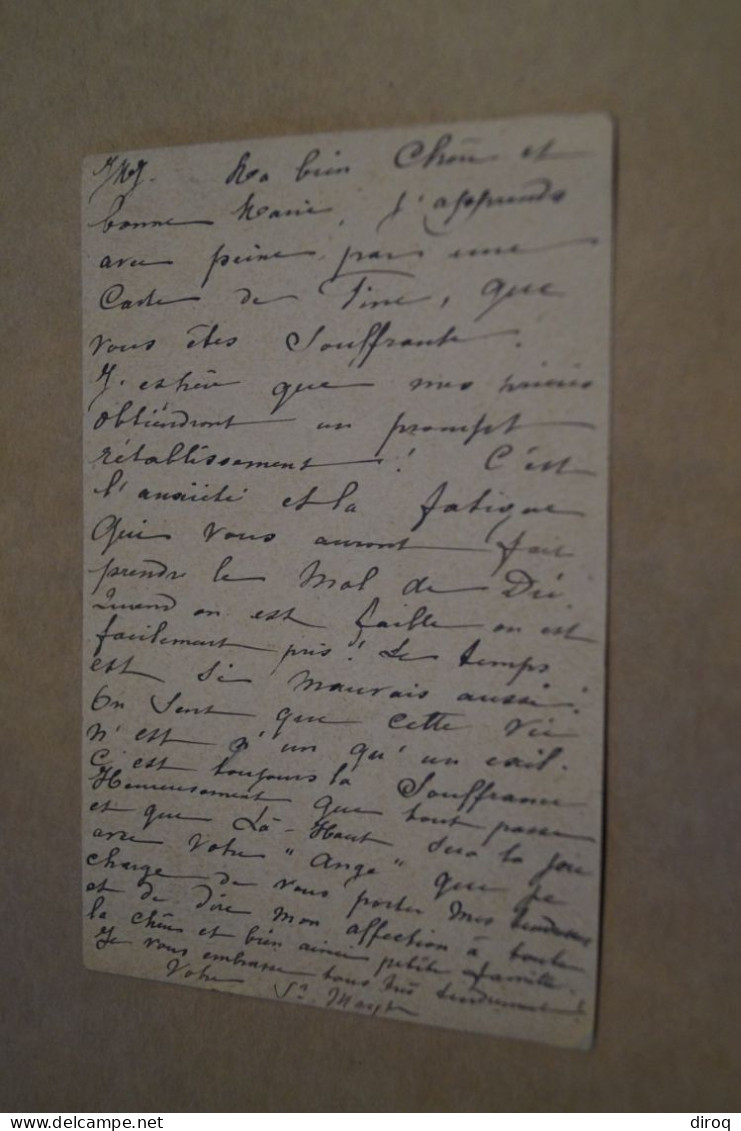 Ma bien Chère et
bonne Marie, J'apprends
avec peine, par une
Carte de Fine, que
vous êtes Souffrante.
J'espère que mes prières
obtiendront un prompt
rétablissement! C'est
l'anxiété et la fatigue
Qui vous auront fait
prendre le Mal de
Quand on est faible on est
facilement pris! Le temps
est si mauvais aussi!
On sent que cette vie
n'est qu'un exil.
C'est toujours la Souffrance
Heureusement que tout passe
et que Là-Haut sera la joie
avec Votre "Ange" que je
charge de vous porter mes tendresses
et de dire mon affection à toute
la chère et bien aimée petite famille.
Je vous embrasse tous très tendrement!
Votre
delcampe.net
diroq